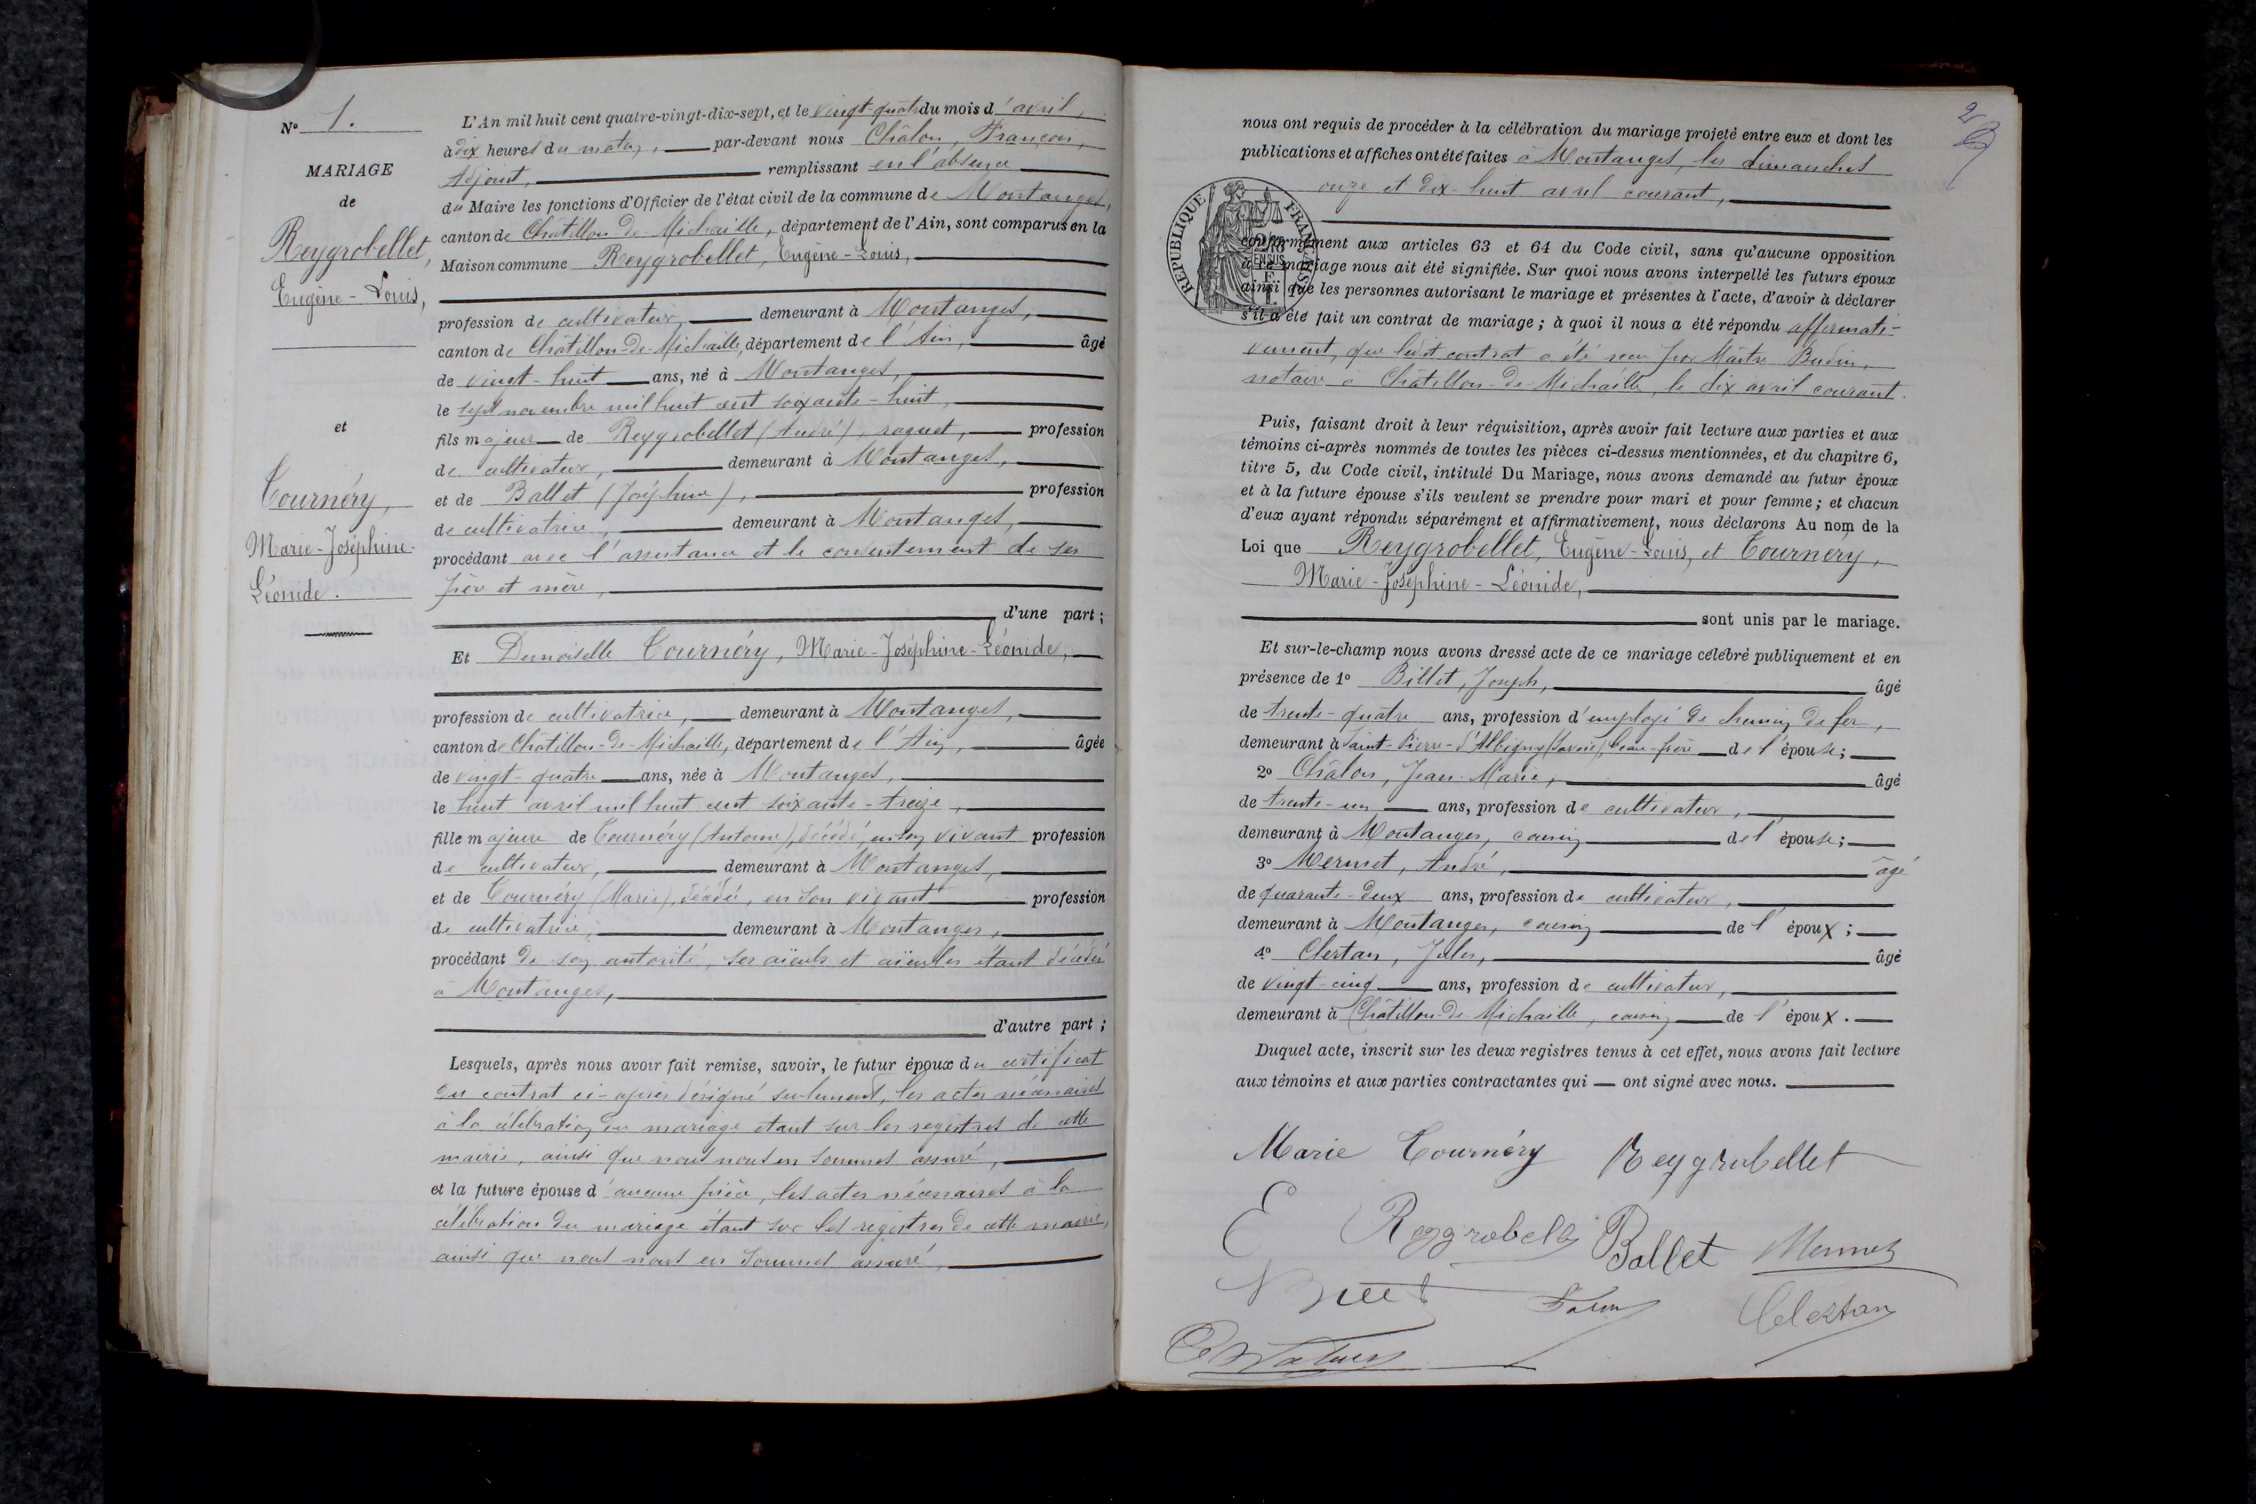 N° 1.
MARIAGE
de
Reygrobellet,
Eugène-Louis,
et
Tournéry,
Marie-Joséphine-
Léonide.
L'An mil huit cent quatre-vingt-dix-sept, et le vingt-quatre du mois d'avril,
à dix heures du matin, par-devant nous Châlon, François,
Adjoint, remplissant en l'absence
du Maire les fonctions d'Officier de l'état civil de la commune de Montanges,
canton de Châtillon-de-Michaille, département de l'Ain, sont comparus en la
Maison commune Reygrobellet, Eugène-Louis,
profession de cultivateur, demeurant à Montanges,
canton de Châtillon-de-Michaille, département de l'Ain, âgé
de vingt-huit ans, né à Montanges,
le sept novembre mil huit cent soixante-huit,
fils majeur de Reygrobellet (André), profession
de cultivateur, demeurant à Montanges,
et de Ballet (Joséphine), profession
de cultivatrice, demeurant à Montanges,
procédant avec l'assistance et le consentement de ses
père et mère,
d'une part;
Et Demoiselle Tournéry, Marie-Joséphine-Léonide,
profession de cultivatrice, demeurant à Montanges,
canton de Châtillon-de-Michaille, département de l'Ain, âgée
de vingt-quatre ans, née à Montanges,
le huit avril mil huit cent soixante-treize,
fille majeure de Tournéry (Antoine), décédé, en son vivant profession
de cultivateur, demeurant à Montanges,
et de Tournéry (Marie), décédée, en son vivant profession
de cultivatrice, demeurant à Montanges,
procédant de son autorité, ses aïeuls et aïeules étant décédés
à Montanges,
d'autre part;
Lesquels, après nous avoir fait remise, savoir, le futur époux du certificat
du contrat ci-après désigné seulement, les actes nécessaires
à la célébration du mariage étant sur les registres de cette
mairie, ainsi que nous nous en sommes assuré,
et la future épouse d'aucune pièce, les actes nécessaires à la
célébration du mariage étant sur les registres de cette mairie,
ainsi que nous nous en sommes assuré,
2
nous ont requis de procéder à la célébration du mariage projeté entre eux et dont les
publications et affiches ont été faites à Montanges, les dimanches
onze et dix-huit avril courant,
RÉPUBLIQUE FRANÇAISE
conformément aux articles 63 et 64 du Code civil, sans qu'aucune opposition
à ce mariage nous ait été signifiée. Sur quoi nous avons interpellé les futurs époux
ainsi que les personnes autorisant le mariage et présentes à l'acte, d'avoir à déclarer
s'il a été fait un contrat de mariage; à quoi il nous a été répondu affirmati-
vement, que ledit contrat a été reçu par Maître Budin,
notaire à Châtillon-de-Michaille, le dix avril courant.
Puis, faisant droit à leur réquisition, après avoir fait lecture aux parties et aux
témoins ci-après nommés de toutes les pièces ci-dessus mentionnées, et du chapitre 6,
titre 5, du Code civil, intitulé Du Mariage, nous avons demandé au futur époux
et à la future épouse s'ils veulent se prendre pour mari et pour femme; et chacun
d'eux ayant répondu séparément et affirmativement, nous déclarons Au nom de la
Loi que Reygrobellet, Eugène-Louis, et Tournery,
Marie-Joséphine-Léonide,
sont unis par le mariage.
Et sur-le-champ nous avons dressé acte de ce mariage célébré publiquement et en
présence de 1° Billet, Joseph, âgé
de trente-quatre ans, profession d'employé de chemin de fer,
demeurant à Saint-Pierre-d'Albigny (Savoie), beau-frère de l'épouse;
2° Châlon, Jean-Marie, âgé
de trente-un ans, profession de cultivateur,
demeurant à Montanges, cousin de l'épouse;
3° Mermet, André, âgé
de quarante-deux ans, profession de cultivateur,
demeurant à Montanges, cousin de l'époux;
4° Clertan, Jules, âgé
de vingt-cinq ans, profession de cultivateur,
demeurant à Châtillon-de-Michaille, cousin de l'époux.
Duquel acte, inscrit sur les deux registres tenus à cet effet, nous avons fait lecture
aux témoins et aux parties contractantes qui ont signé avec nous.
Marie Tournéry Reygrobellet
E Reygrobellet Ballet Mermet
Billet Clertan